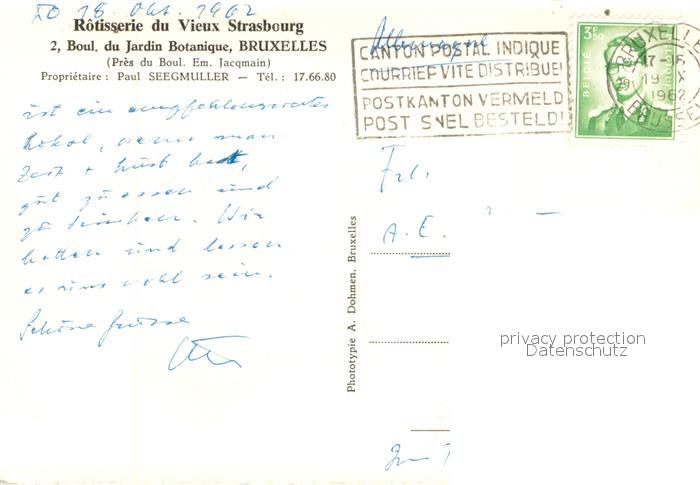 DO 18. Okt. 1962
Rôtisserie du Vieux Strasbourg
2, Boul. du Jardin Botanique, BRUXELLES
(Près du Boul. Em. Jacqmain)
Propriétaire : Paul SEEGMULLER — Tél. : 17.66.80
ist ein empfehlenswertes
Lokal, wenn man
Zeit + Lust hat,
gut zu essen und
zu trinken. Wir
hatten und lassen
es uns wohl sein.
Schöne Grüsse
Phototypie A. Dohmen, Bruxelles
Allemagne
CANTON POSTAL INDIQUE
COURRIER VITE DISTRIBUE!
POSTKANTON VERMELD
POST SNEL BESTELD!
3F50
BELGIË
BRUXELLES
17-18
19 X
1962
BRUSSEL
Frl.
A. E.
privacy protection
Datenschutz